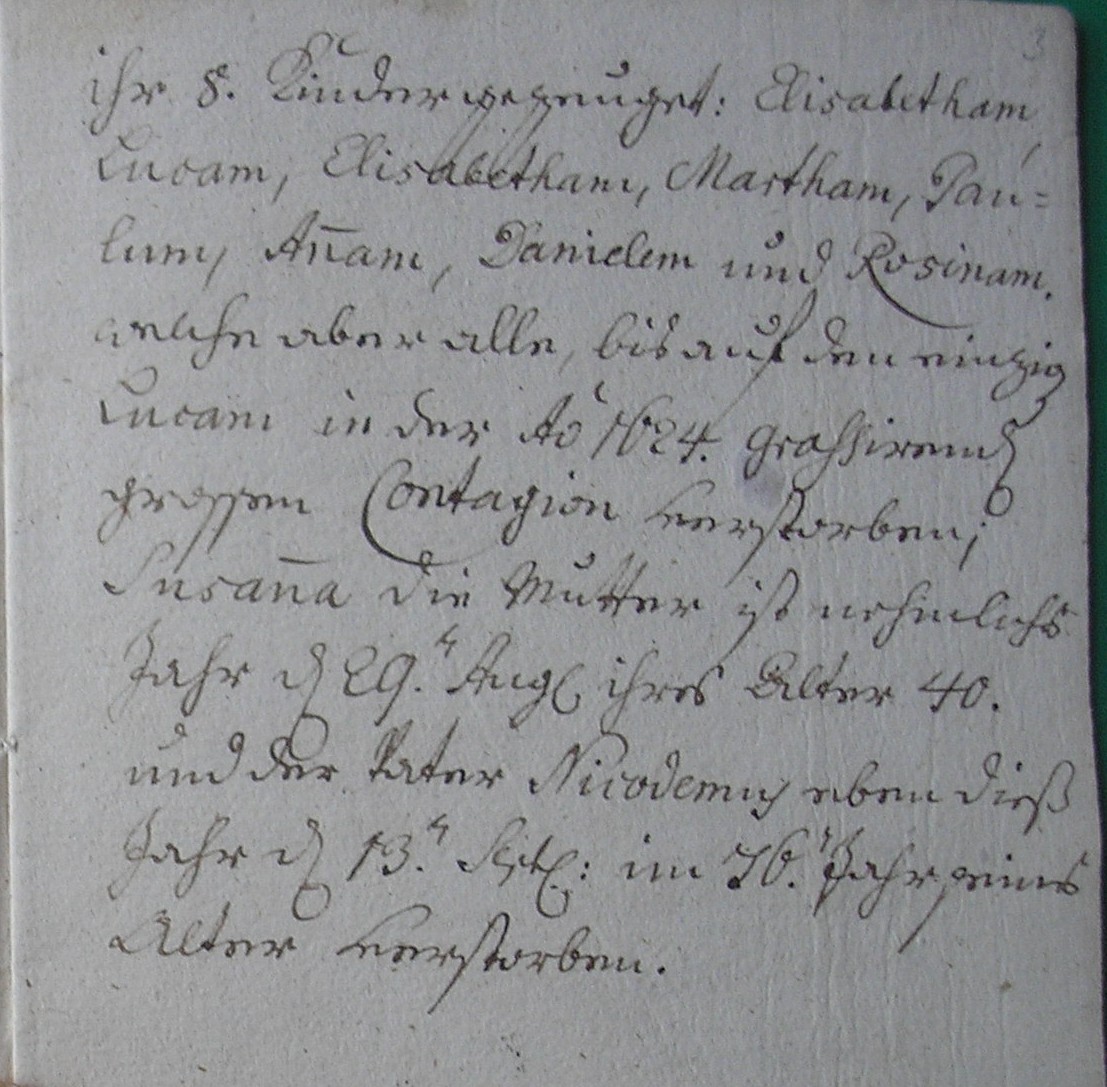 3
ihr 8. Kinder gezeuget: Elisabetham,
Lucam, Elisabetham, Martham, Pau=
lum, An̄am, Danielem und Rosinam.
welche aber alle, bis auf den einzig
Lucam in der Aō 1624. grassirend
grossen Contagion verstorben;
Susan̄a die Mutter ist nehmlichs
Jahr d 29.t Aug ihres Alter 40.
und der Vater Nicodemus eben dieß
Jahr d 13.t Sept: im 76.t Jahr seines
Alter verstorben.